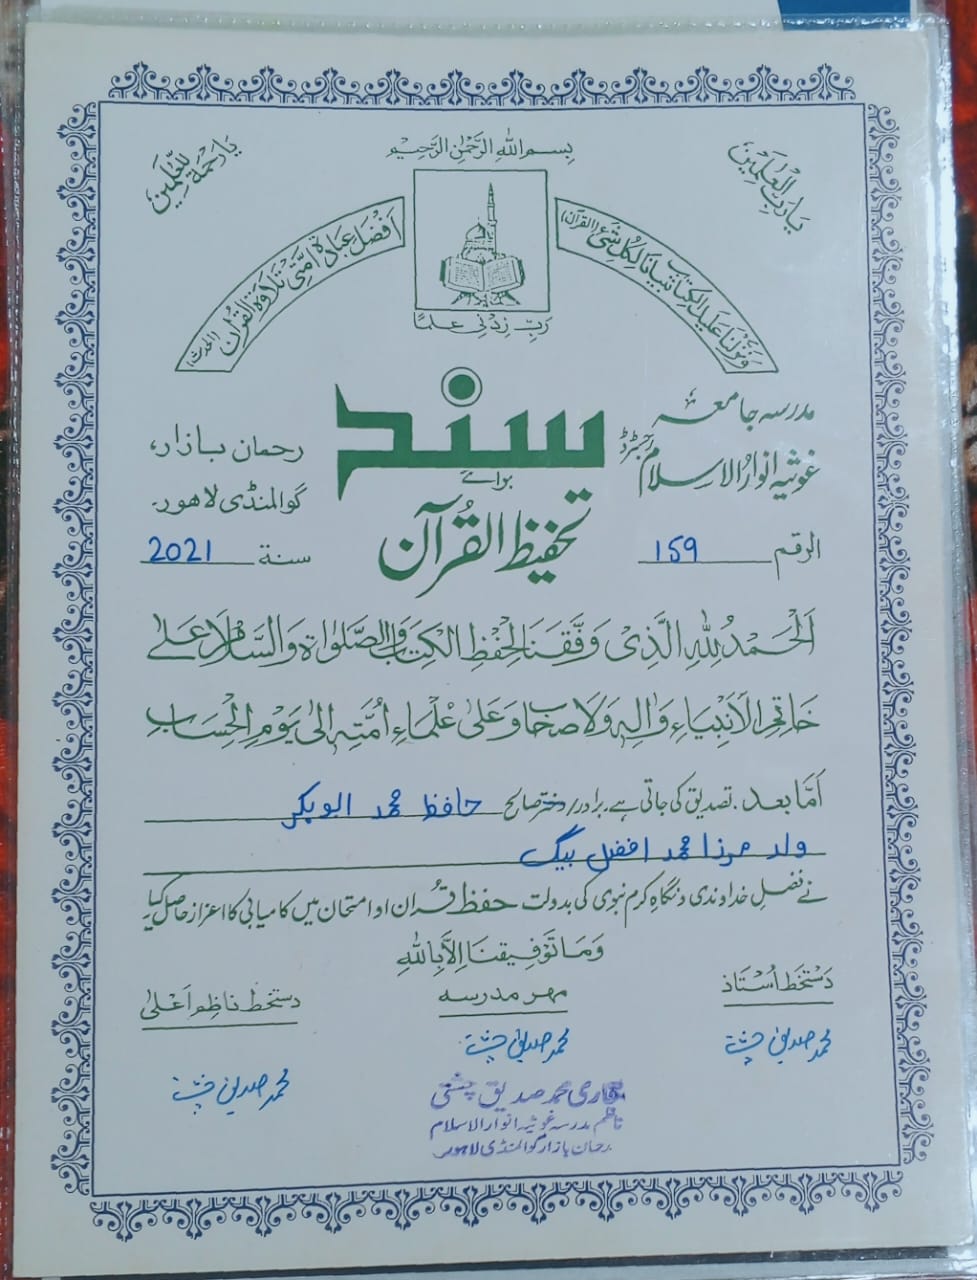 بسم الله الرحمن الرحيم
يا رب العلمين
يا رحمة للعلمين
ونزلنا عليك الكتاب تبيانا لكل شئ (القرآن)
افضل عبادة امتى تلاوة القرآن (الحديث)
رب زدني علما
مدرسہ جامعہ
غوثیہ انوار الاسلام رجسٹرڈ
سند
برائے
تحفیظ القرآن
رحمان بازار،
گوالمنڈی لاہور۔
الرقم 159
سنة 2021
الحمد لله الذي وفقنا لحفظ الكتاب والصلوة والسلام على
خاتم الانبياء واله ولاصحابه وعلى علماء امته الى يوم الحساب
اما بعد۔ تصدیق کی جاتی ہے برادر/دختر صالح حافظ محمد ابوبکر
ولد مرزا محمد افضل بیگ
نے فضل خداوندی و نگاہ کرم نبوی کی بدولت حفظ قرآن او امتحان میں کامیابی کا اعزاز حاصل کیا
وما توفيقنا الا بالله
دستخط استاذ
مہر مدرسہ
دستخط ناظم اعلیٰ
محمد صدیق چشتی
محمد صدیق چشتی
محمد صدیق چشتی
قاری محمد صدیق چشتی
ناظم مدرسہ غوثیہ انوار الاسلام
رحمان بازار گوالمنڈی لاہور